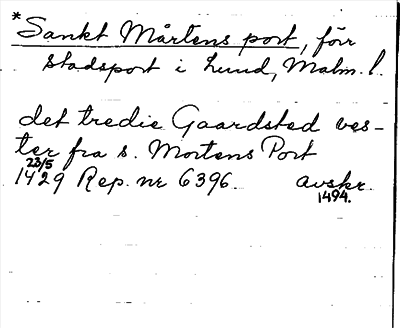 *Sankt Mårtens port, förr
stadsport i Lund, Malm. l.
det tredie Gaardsted ves-
ter fra s. Mortens Port
23/5
1429 Rep. nr 6396. avskr.
1494.